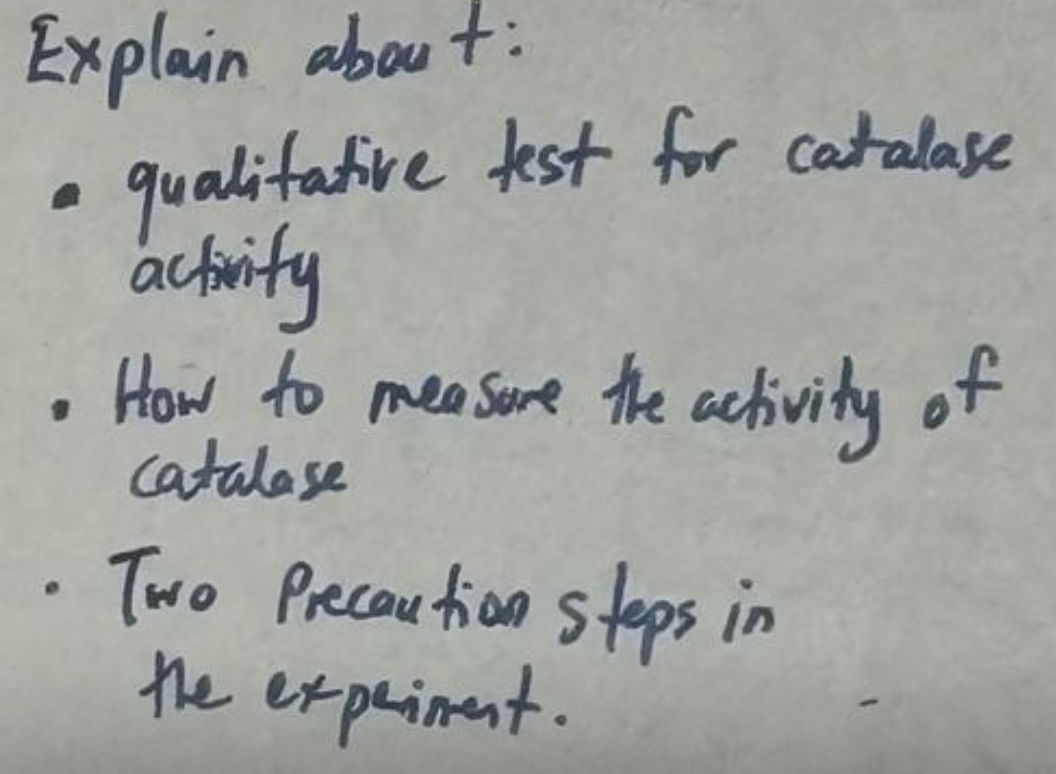 Explain about:
• qualitative test for catalase
activity
• How to measure the activity of
catalase
• Two Precaution steps in
the experiment.